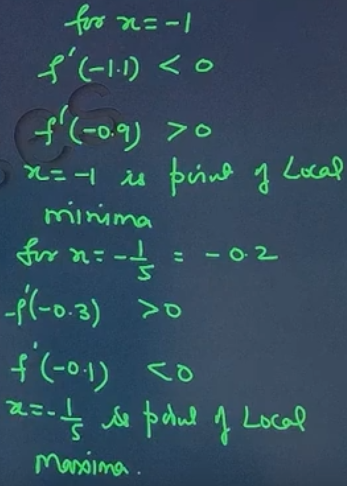 for x = -1
f'(-1.1) < 0
f'(-0.9) > 0
x = -1 is point of Local
minima
for x = -1/5 = -0.2
f'(-0.3) > 0
f'(-0.1) < 0
x = -1/5 is point of Local
Maxima.